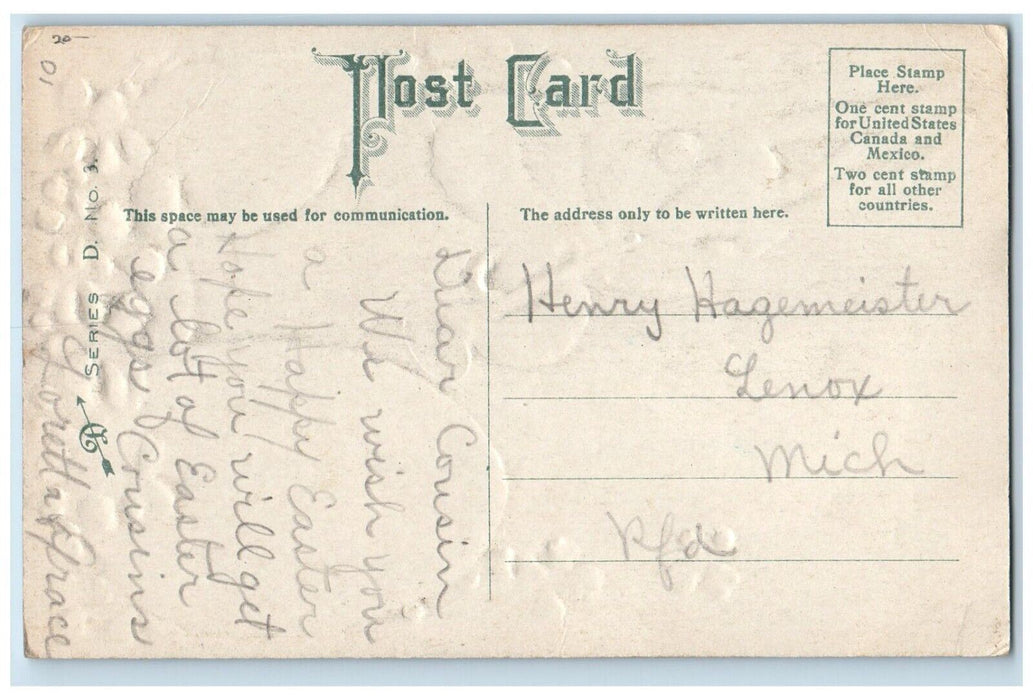 20-
01
Post Card
Place Stamp
Here.
One cent stamp
for United States
Canada and
Mexico.
Two cent stamp
for all other
countries.
This space may be used for communication.
The address only to be written here.
Dear Cousin
We wish you
a Happy Easter
Hope you will get
a lot of Easter
eggs Cousins
Loretta Grace
Henry Hagemeister
Lenox
Mich
Rfd
SERIES D. NO. 3.